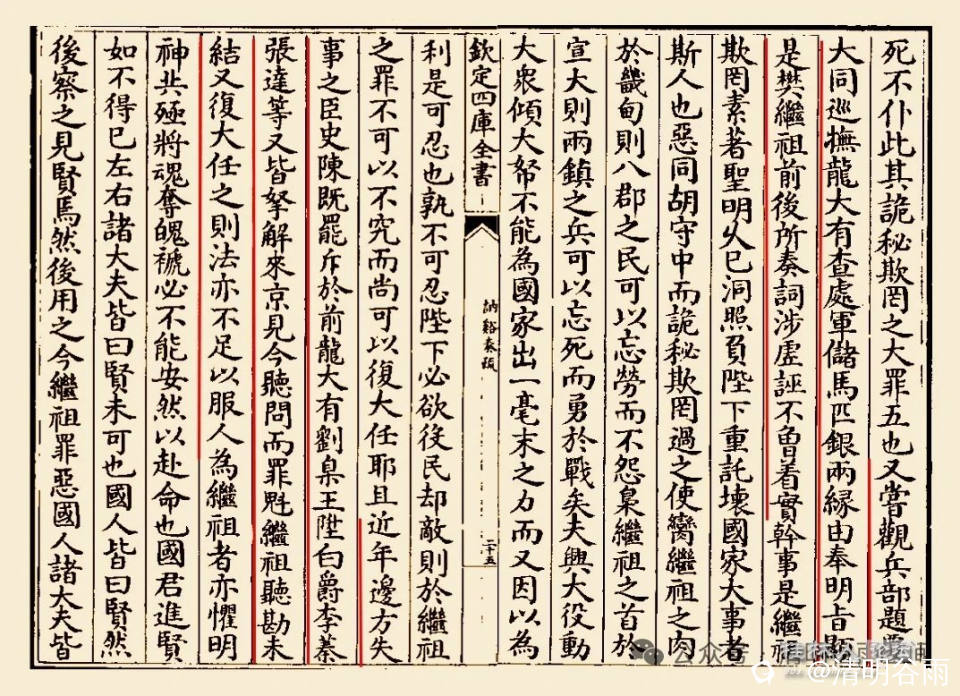 死不仆此其詭秘欺罔之大罪五也又嘗觀兵部題覆
大同巡撫龍大有查處軍儲馬匹銀兩緣由奉明旨題
是樊繼祖前後所奏詞涉虛誣不曾着實幹事是繼祖
欺罔素著聖明久已洞照負陛下重託壞國家大事者
斯人也惡同胡守中而詭秘欺罔過之使臠繼祖之肉
於畿甸則八郡之民可以忘勞而不怨梟繼祖之首於
宣大則兩鎮之兵可以忘死而勇於戰矣夫興大役動
大衆傾大帑不能為國家出一毫末之力而又因以為
欽定四庫全書
訥谿奏疏
二十五
利是可忍也孰不可忍陛下必欲役民却敵則於繼祖
之罪不可以不究而尚可以復大任耶且近年邊方失
事之臣史陳既罷斥於前龍大有劉臬王陞白爵李蓁
張達等又皆拏解來京見今聽問而罪魁繼祖聽勘未
結又復大任之則法亦不足以服人為繼祖者亦懼明
神共殛將魂奪魄褫必不能安然以赴命也國君進賢
如不得已左右諸大夫皆曰賢未可也國人皆曰賢然
後察之見賢焉然後用之今繼祖罪惡國人諸大夫皆
公众号
@清明谷雨